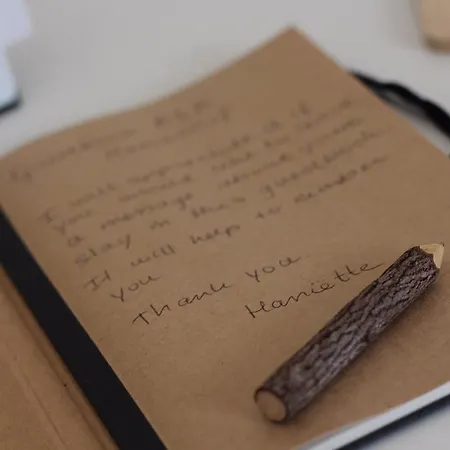 Guestbook B&B
I will appreciate it if
you would like to leave
a message about your
stay in this guestbook
It will help to remember
you
Thank you
Harriëtte